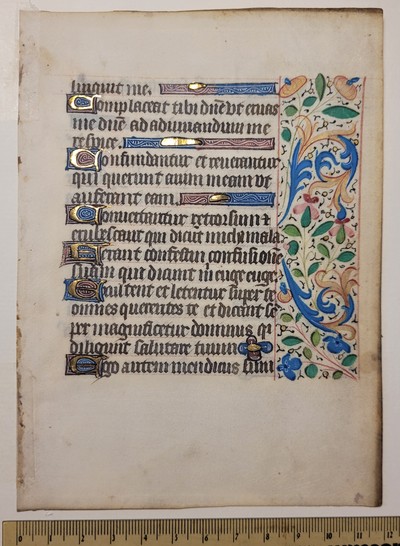 linquit me.
Complaceat tibi dñe vt eruas
me dñe ad adiuuandum me
respice.
Confundantur et reuerantur
qui querunt animam meam vt
auferant eam.
Conuertantur retrorsum ⁊
erubescant qui dicut michi mala
Ferant confestim confusione
suam qui dicunt m euge euge.
Exultent et letentur super te
omnes querentes te et dicant se
per magnificetur dominus qi
diligunt salutare tuum
Ego autem mendicus sum
0 1 2 3 4 5 6 7 8 9 10 11 12